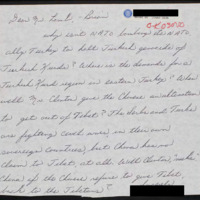 Dear Mr.
why isn't NATO bombing the NATO
ally Turkey to halt Turkish genocide of
Turkish Kurds? Where is the demands for a
Turkish Kurd region in eastern Turkey? When
will Mr. Clinton give the Chinese an ultimatum
to get out of Tibet? The Serbs and Turks
are fighting civil wars in their own
sovereign countries, but China has no
claim to Tibet, at all. Will Clinton "make
China if the Chinese refuse to give Tibet
back to the Tibetans?